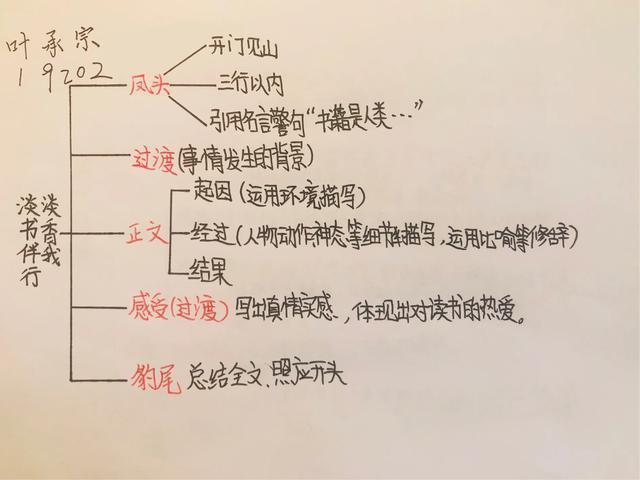 叶承宗
19202
开门见山
凤头
三行以内
引用名言警句“书籍是人类…”
过渡(事情发生的背景)
淡淡书香伴我行
起因(运用环境描写)
正文
经过(人物动作神态等细节描写,运用比喻等修辞)
结果
感受(过渡) 写出真情实感、体现出对读书的热爱。
豹尾 总结全文、照应开头